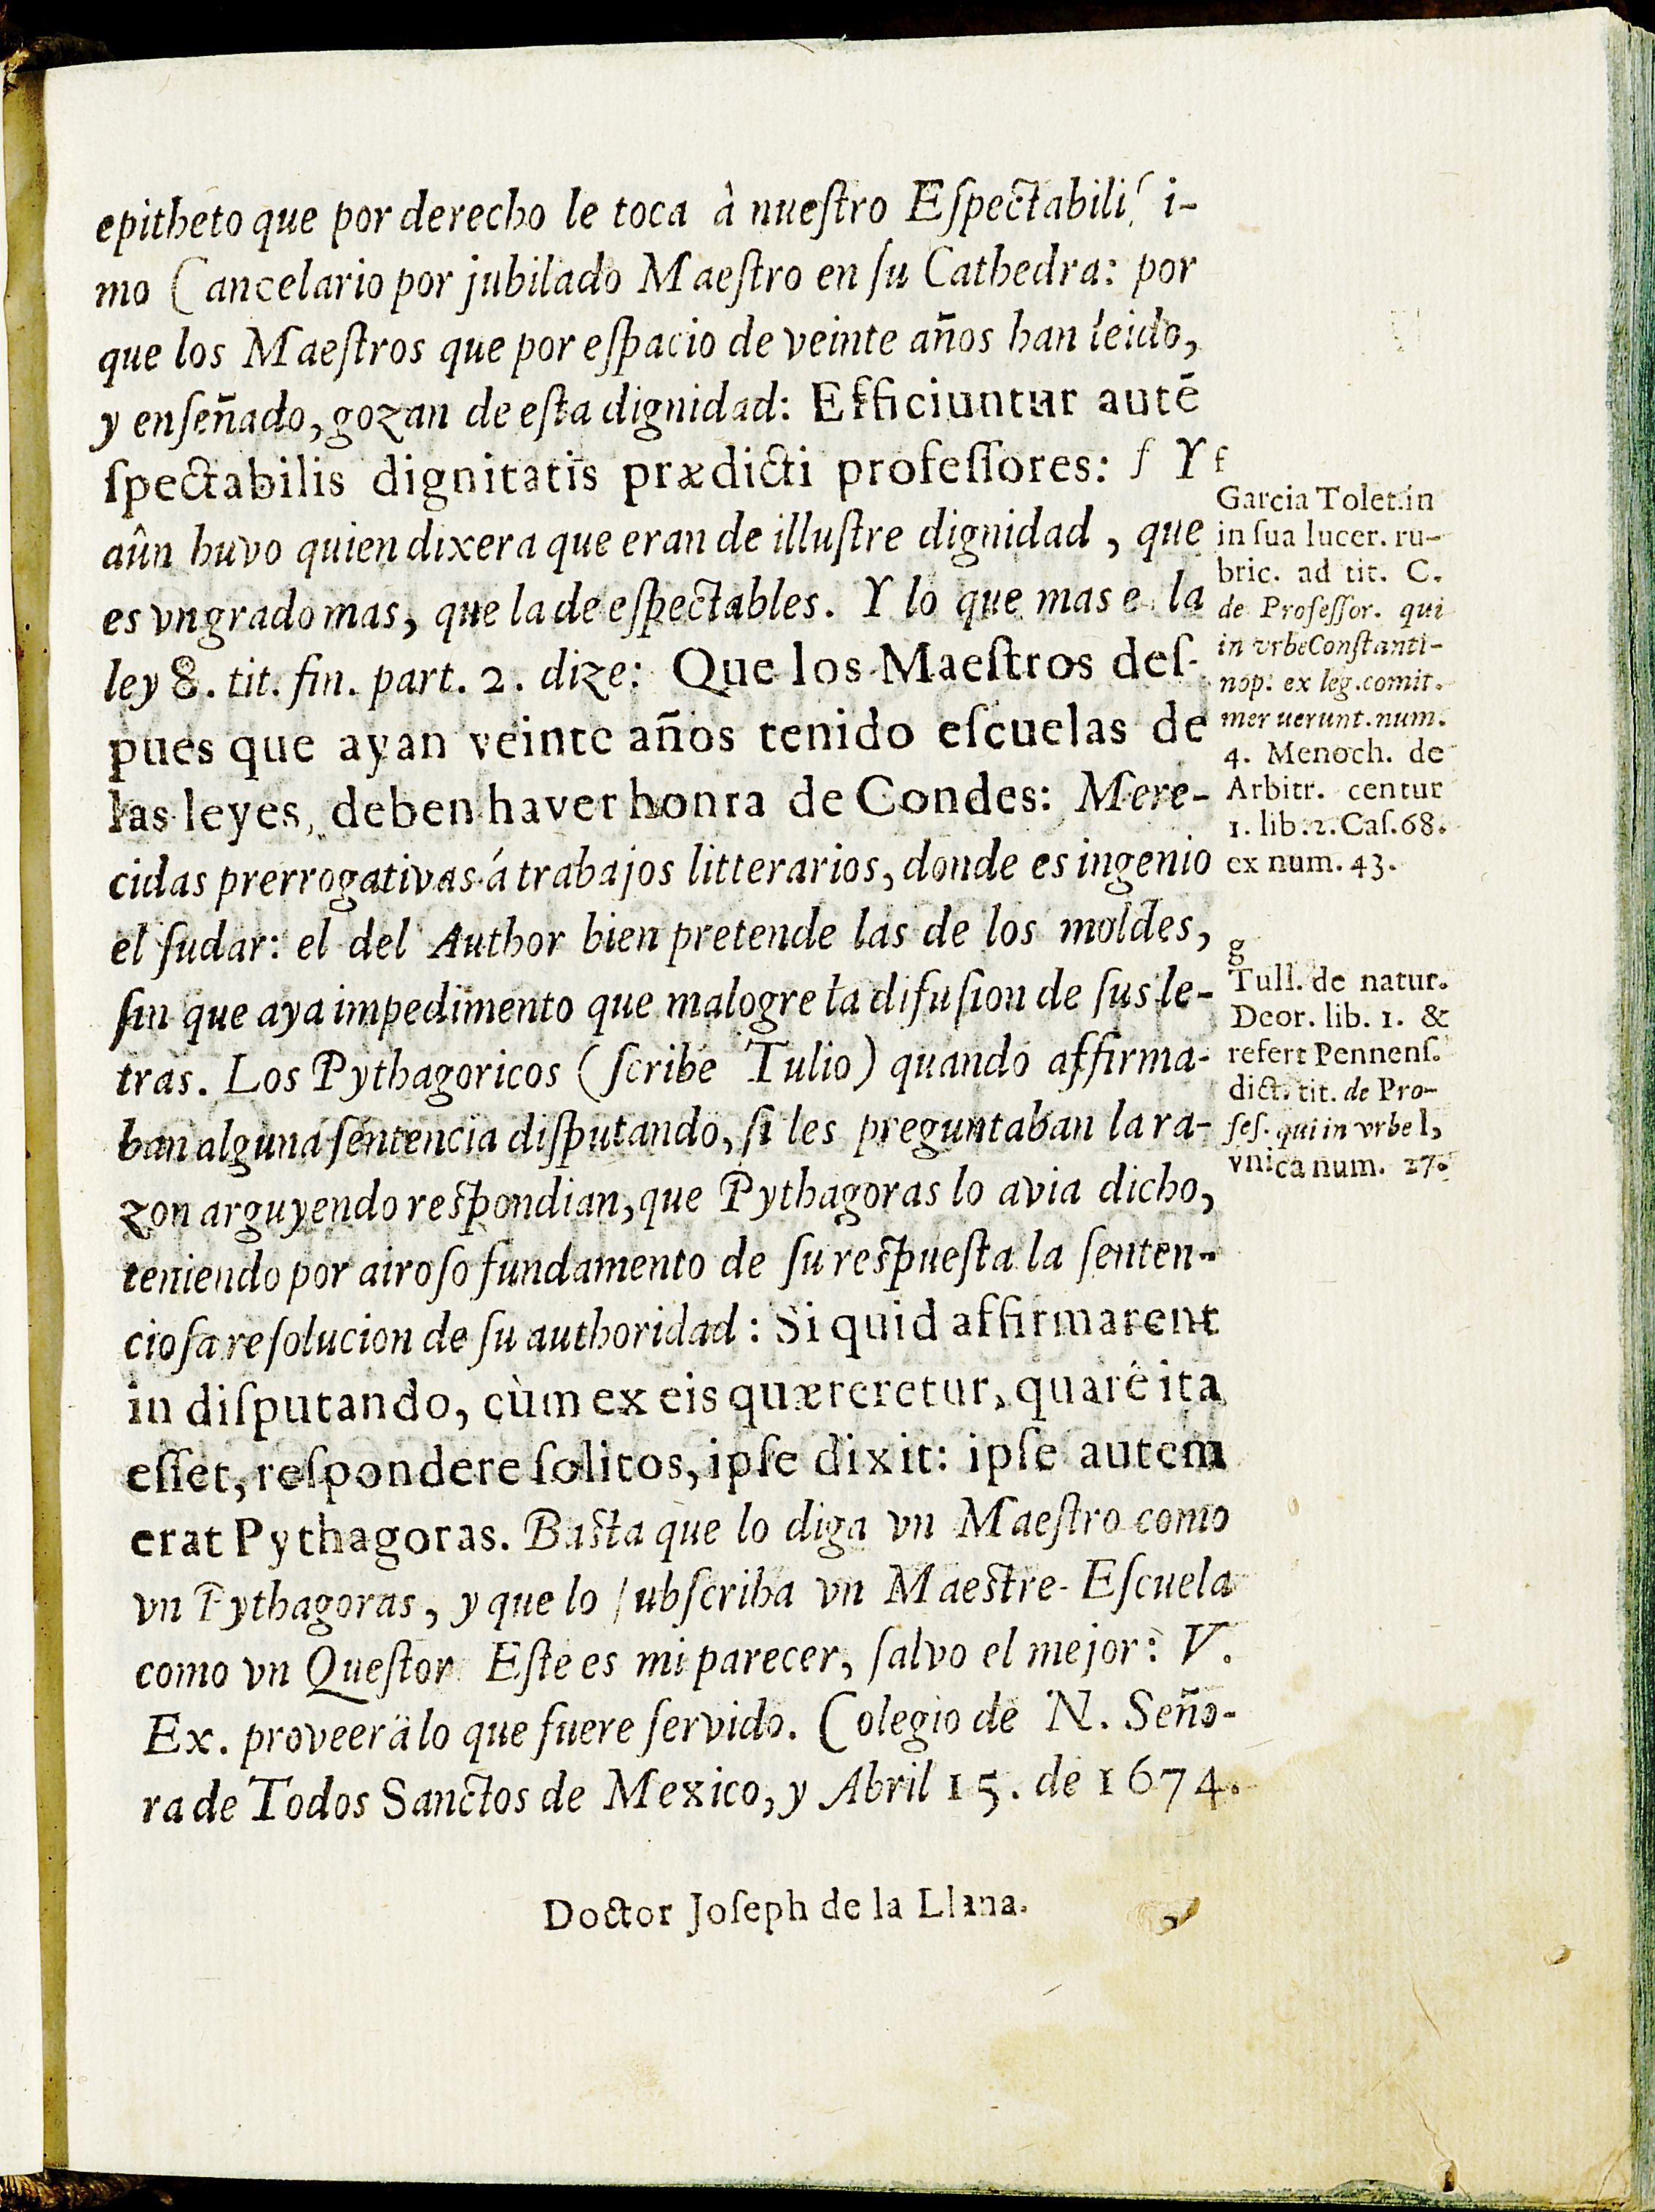 epitheto que por derecho le toca à nueſtro Eſpectabiliſ i-
mo Cancelario por jubilado Maeſtro en ſu Cathedra: por
que los Maeſtros que por eſpacio de veinte años han leido,
y enſeñado, gozan de eſta dignidad: Efficiuntur autē
ſpectabilis dignitatis prædicti profeſſores: f Y
aûn huvo quien dixera que eran de illuſtre dignidad, que
es vn grado mas, que la de eſpectables. Y lo que mas e la
ley 8. tit. fin. part. 2. dize: Que los Maeſtros deſ-
pues que ayan veinte años tenido eſcuelas de
las leyes, deben haver honra de Condes: Mere-
cidas prerrogativas á trabajos litterarios, donde es ingenio
el ſudar: el del Author bien pretende las de los moldes,
ſin que aya impedimento que malogre la difuſion de ſus le-
tras. Los Pythagoricos (ſcribe Tulio) quando affirma-
ban alguna ſentencia diſputando, ſi les preguntaban la ra-
zon arguyendo reſpondian, que Pythagoras lo avia dicho,
teniendo por airoſo fundamento de ſu reſpueſta la ſenten-
cioſa reſolucion de ſu authoridad: Si quid affirmarent
in diſputando, cùm ex eis quæreretur, quarè ita
eſſet, reſpondere ſolitos, ipſe dixit: ipſe autem
erat Pythagoras. Baſta que lo diga vn Maeſtro como
vn Pythagoras, y que lo ſubſcriba vn Maeſtre-Eſcuela
como vn Queſtor Eſte es mi parecer, ſalvo el mejor: V.
Ex. proveerà lo que fuere ſervido. Colegio de N. Seño-
ra de Todos Sanctos de Mexico, y Abril 15. de 1674.
Doctor Joſeph de la Llana.
f
Garcia Tolet. in
in ſua lucer. ru-
bric. ad tit. C.
de Profeſſor. qui
in vrbe Conſtanti-
nop. ex leg. comit.
meruerunt. num.
4. Menoch. de
Arbitr. centur
1. lib. 2. Caſ. 68.
ex num. 43.
g
Tull. de natur.
Deor. lib. 1. &
refert Pennenſ.
dict. tit. de Pro-
feſ. qui in vrbe l,
vnica num. 27.